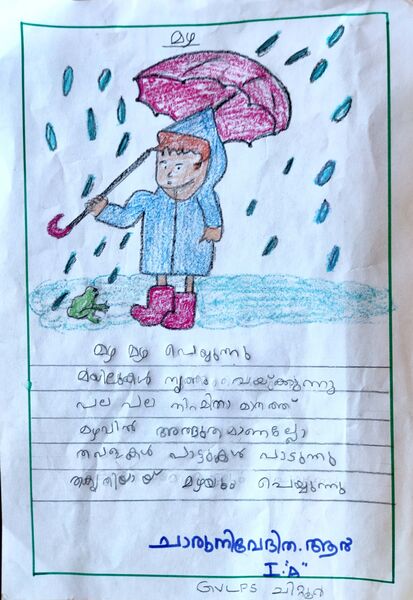 മഴ
മഴ മഴ പെയ്യുന്നു
മയിലുകൾ നൃത്തം വെയ്ക്കുന്നു
പല പല നിറമിതാ മാനത്ത്
മഴവിൽ അത്ഭുതമാണല്ലോ
തവളകൾ പാട്ടുകൾ പാടുന്നു
തകൃതിയായ് മഴയും പെയ്യുന്നു
ചാരുനിവേദിത.ആർ
I "A"
GVLPS ചിറ്റൂർ